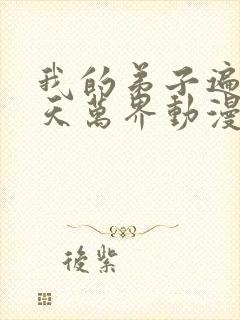 我的弟子遍
天萬界動漫
後紫